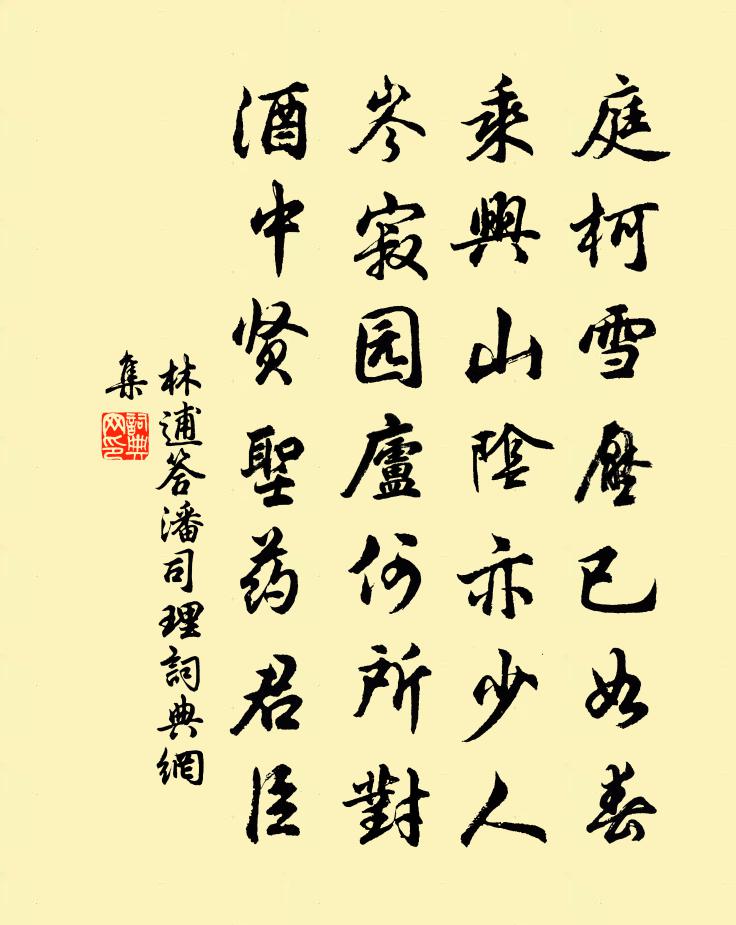 庭柯雪壓已如春
乘興山陰亦少人
岑寂园廬何所對
酒中贤聖药君臣
林逋答潘司理詞典網
集
詞典
网印